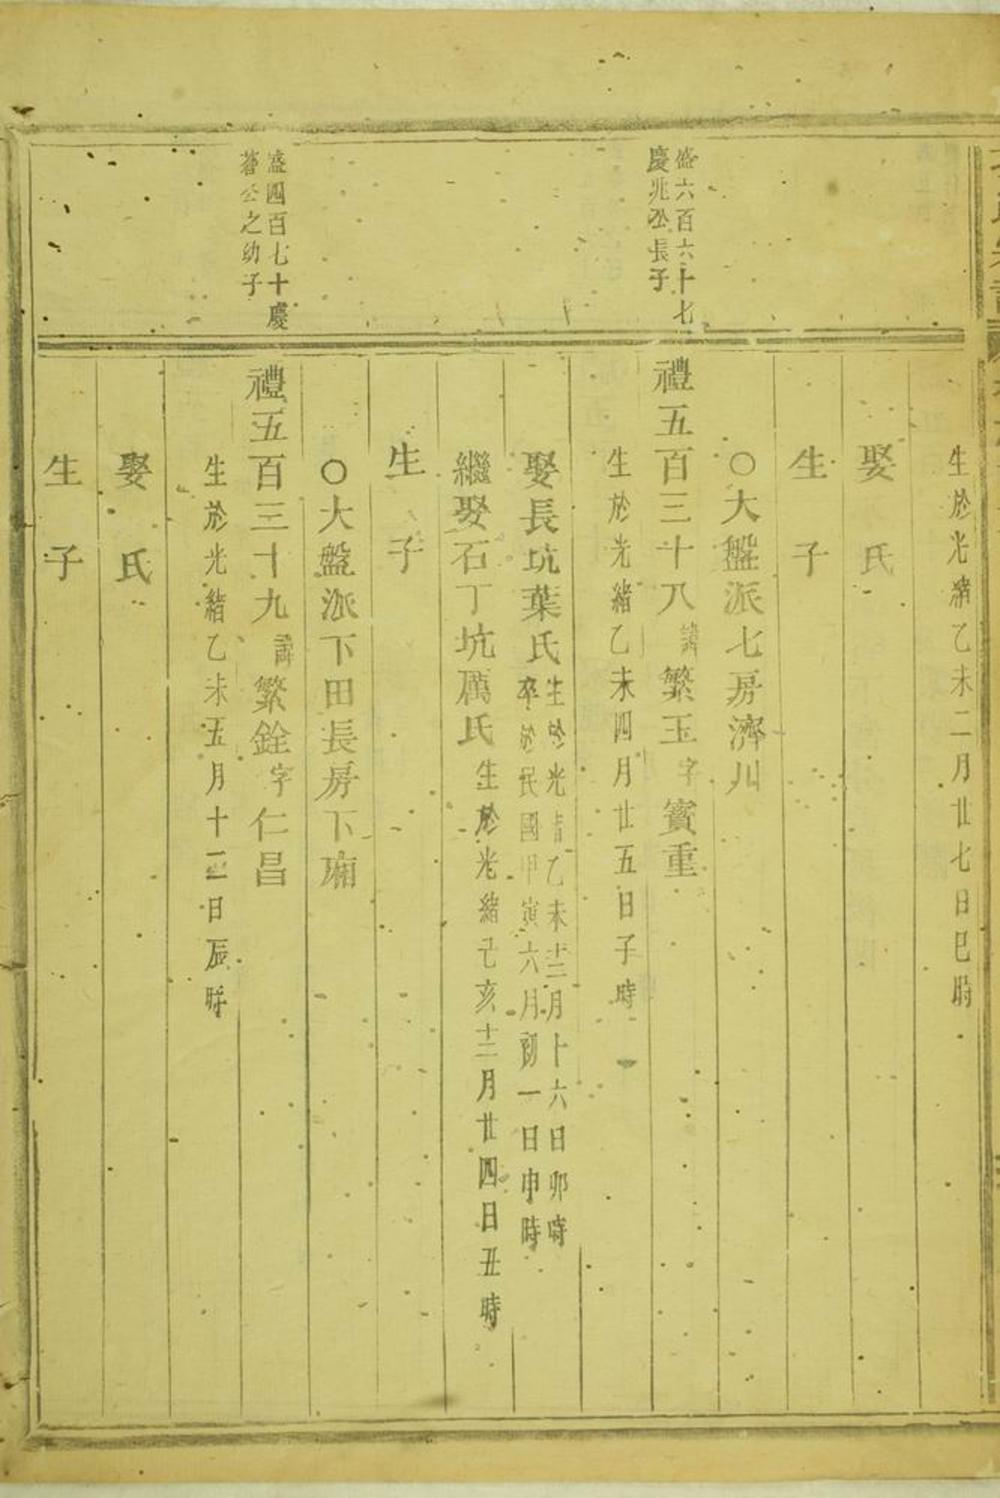 生於光緒乙未二月廿七日巳時
娶 氏
生 子
○大盤派七房濟川
盛六百六十七
慶兆公長子
禮五百三十八諱繁玉字賓重
生於光緒乙未四月廿五日子時
娶長坑葉氏生於光緒乙未十二月十六日卯時
卒於民國甲寅六月初一日申時
繼娶石丁坑厲氏生於光緒己亥十二月廿四日丑時
生 子
○大盤派下田長房下廂
盛四百七十慶
公之幼子
禮五百三十九諱繁銓字仁昌
生於光緒乙未五月十二日辰時
娶 氏
生 子